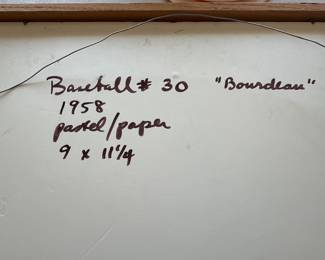 Baseball # 30 "Bourdeau"
1958
pastel/paper
9 x 11 1/4